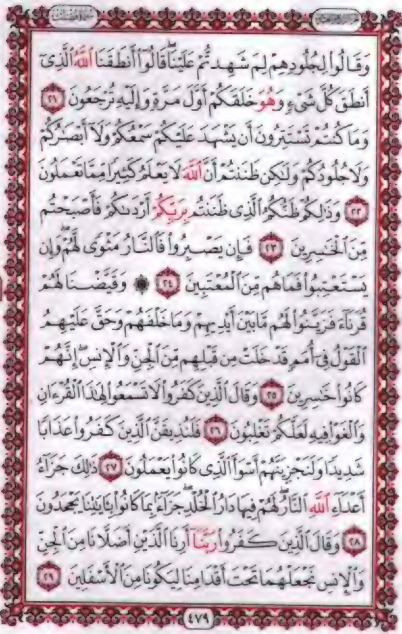 وَقَالُوا لِجُلُودِهِمْ لِمَ شَهِدتُّمْ عَلَيْنَا ۖ قَالُوا أَنطَقَنَا اللَّهُ الَّذِي
أَنطَقَ كُلَّ شَيْءٍ وَهُوَ خَلَقَكُمْ أَوَّلَ مَرَّةٍ وَإِلَيْهِ تُرْجَعُونَ ٢١
وَمَا كُنتُمْ تَسْتَتِرُونَ أَن يَشْهَدَ عَلَيْكُمْ سَمْعُكُمْ وَلَا أَبْصَارُكُمْ
وَلَا جُلُودُكُمْ وَلَٰكِن ظَنَنتُمْ أَنَّ اللَّهَ لَا يَعْلَمُ كَثِيرًا مِّمَّا تَعْمَلُونَ
٢٢ وَذَٰلِكُمْ ظَنُّكُمُ الَّذِي ظَنَنتُم بِرَبِّكُمْ أَرْدَاكُمْ فَأَصْبَحْتُم
مِّنَ الْخَاسِرِينَ ٢٣ فَإِن يَصْبِرُوا فَالنَّارُ مَثْوًى لَّهُمْ ۖ وَإِن
يَسْتَعْتِبُوا فَمَا هُم مِّنَ الْمُعْتَبِينَ ٢٤ ۞ وَقَيَّضْنَا لَهُمْ
قُرَنَاءَ فَزَيَّنُوا لَهُم مَّا بَيْنَ أَيْدِيهِمْ وَمَا خَلْفَهُمْ وَحَقَّ عَلَيْهِمُ
الْقَوْلُ فِي أُمَمٍ قَدْ خَلَتْ مِن قَبْلِهِم مِّنَ الْجِنِّ وَالْإِنسِ ۖ إِنَّهُمْ
كَانُوا خَاسِرِينَ ٢٥ وَقَالَ الَّذِينَ كَفَرُوا لَا تَسْمَعُوا لِهَٰذَا الْقُرْآنِ
وَالْغَوْا فِيهِ لَعَلَّكُمْ تَغْلِبُونَ ٢٦ فَلَنُذِيقَنَّ الَّذِينَ كَفَرُوا عَذَابًا
شَدِيدًا وَلَنَجْزِيَنَّهُمْ أَسْوَأَ الَّذِي كَانُوا يَعْمَلُونَ ٢٧ ذَٰلِكَ جَزَاءُ
أَعْدَاءِ اللَّهِ النَّارُ ۖ لَهُمْ فِيهَا دَارُ الْخُلْدِ ۖ جَزَاءً بِمَا كَانُوا بِآيَاتِنَا يَجْحَدُونَ
٢٨ وَقَالَ الَّذِينَ كَفَرُوا رَبَّنَا أَرِنَا الَّذَيْنِ أَضَلَّانَا مِنَ الْجِنِّ
وَالْإِنسِ نَجْعَلْهُمَا تَحْتَ أَقْدَامِنَا لِيَكُونَا مِنَ الْأَسْفَلِينَ ٢٩
٤٧٩